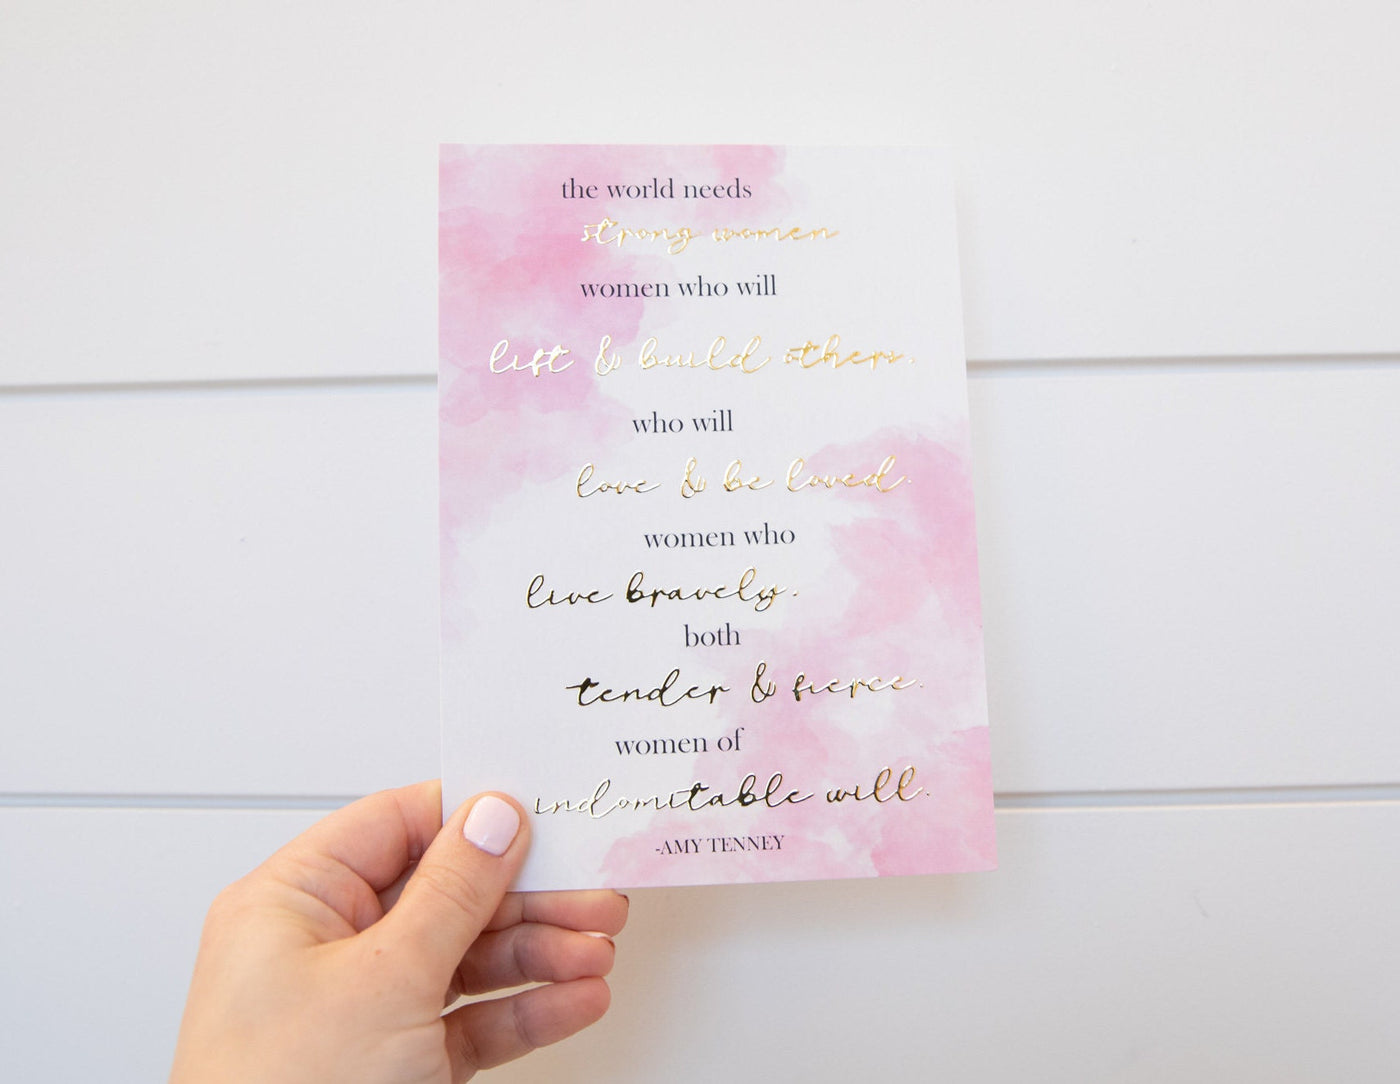 the world needs
strong women
women who will
lift & build others.
who will
love & be loved.
women who
live bravely.
both
tender & fierce.
women of
indomitable will.
-AMY TENNEY